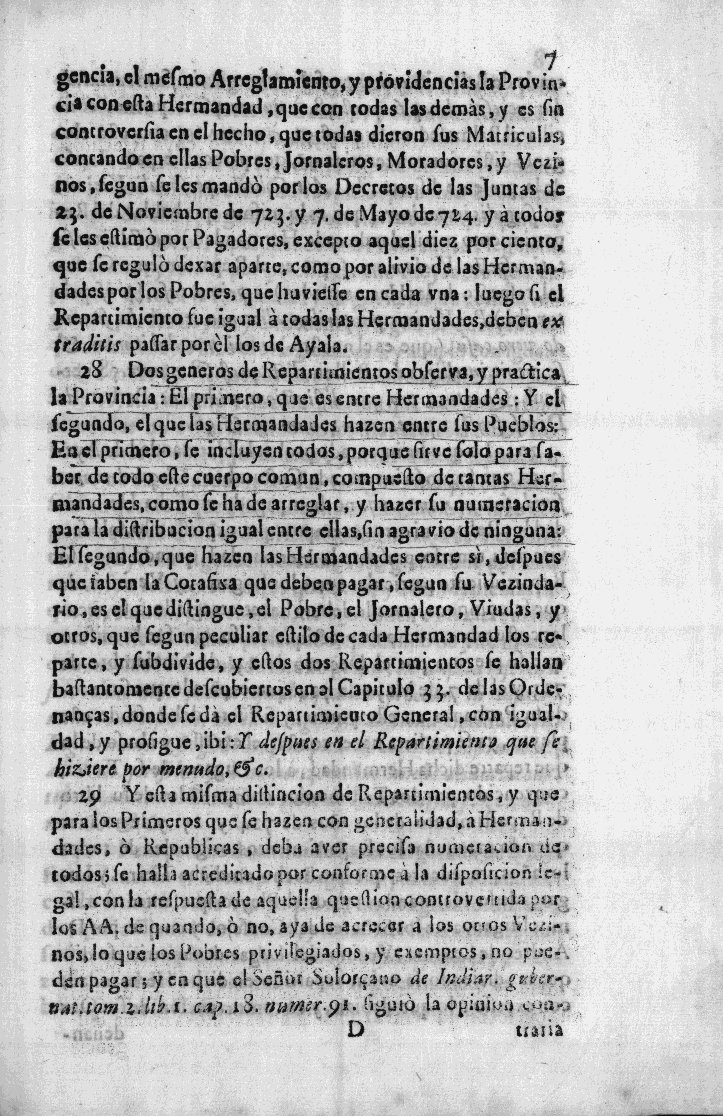 7
gencia, el mesmo Arreglamiento, y providencias la Provin-
cia con esta Hermandad, que con todas las demàs, y es sin
controversia en el hecho, que todas dieron sus Matriculas,
contando en ellas Pobres, Jornaleros, Moradores, y Vezi-
nos, segun se les mandò por los Decretos de las Juntas de
23. de Noviembre de 723. y 7. de Mayo de 724. y à todos
se les estimò por Pagadores, excepto aquel diez por ciento,
que se regulò dexar aparte, como por alivio de las Herman-
dades por los Pobres, que huviesse en cada vna: luego si el
Repartimiento fue igual à todas las Hermandades, deben ex
traditis passar por èl los de Ayala.
28 Dos generos de Repartimientos observa, y practica
la Provincia: El primero, que es entre Hermandades: Y el
segundo, el que las Hermandades hazen entre sus Pueblos:
En el primero, se incluyen todos, porque sirve solo para sa-
ber de todo este cuerpo comun, compuesto de tantas Her-
mandades, como se ha de arreglar, y hazer su numeracion
para la distribucion igual entre ellas, sin agravio de ninguna:
El segundo, que hazen las Hermandades entre sì, despues
que saben la Cotafixa que deben pagar, segun su Vezinda-
rio, es el que distingue, el Pobre, el Jornalero, Viudas, y
otros, que segun peculiar estilo de cada Hermandad los re-
parte, y subdivide, y estos dos Repartimientos se hallan
bastantomente descubiertos en el Capitulo 33. de las Orde-
nanças, donde se dà el Repartimiento General, con igual-
dad, y prosigue, ibi: Y despues en el Repartimiento que se
hiziere por menudo, &c.
29 Y esta misma distincion de Repartimientos, y que
para los Primeros que se hazen con generalidad, à Herman-
dades, ò Republicas, deba aver precisa numeracion de
todos; se halla acreditado por conforme à la disposicion le-
gal, con la respuesta de aquella question controvertida por
los AA. de quando, ò no, aya de acrecer à los otros Vezi-
nos, lo que los Pobres privilegiados, y exemptos, no pue-
den pagar; y en que el Señor Solorçano de Indiar. guber-
nat. tom. 2. lib. 1. cap. 18. numer. 91. siguiò la opinion con-
D traria